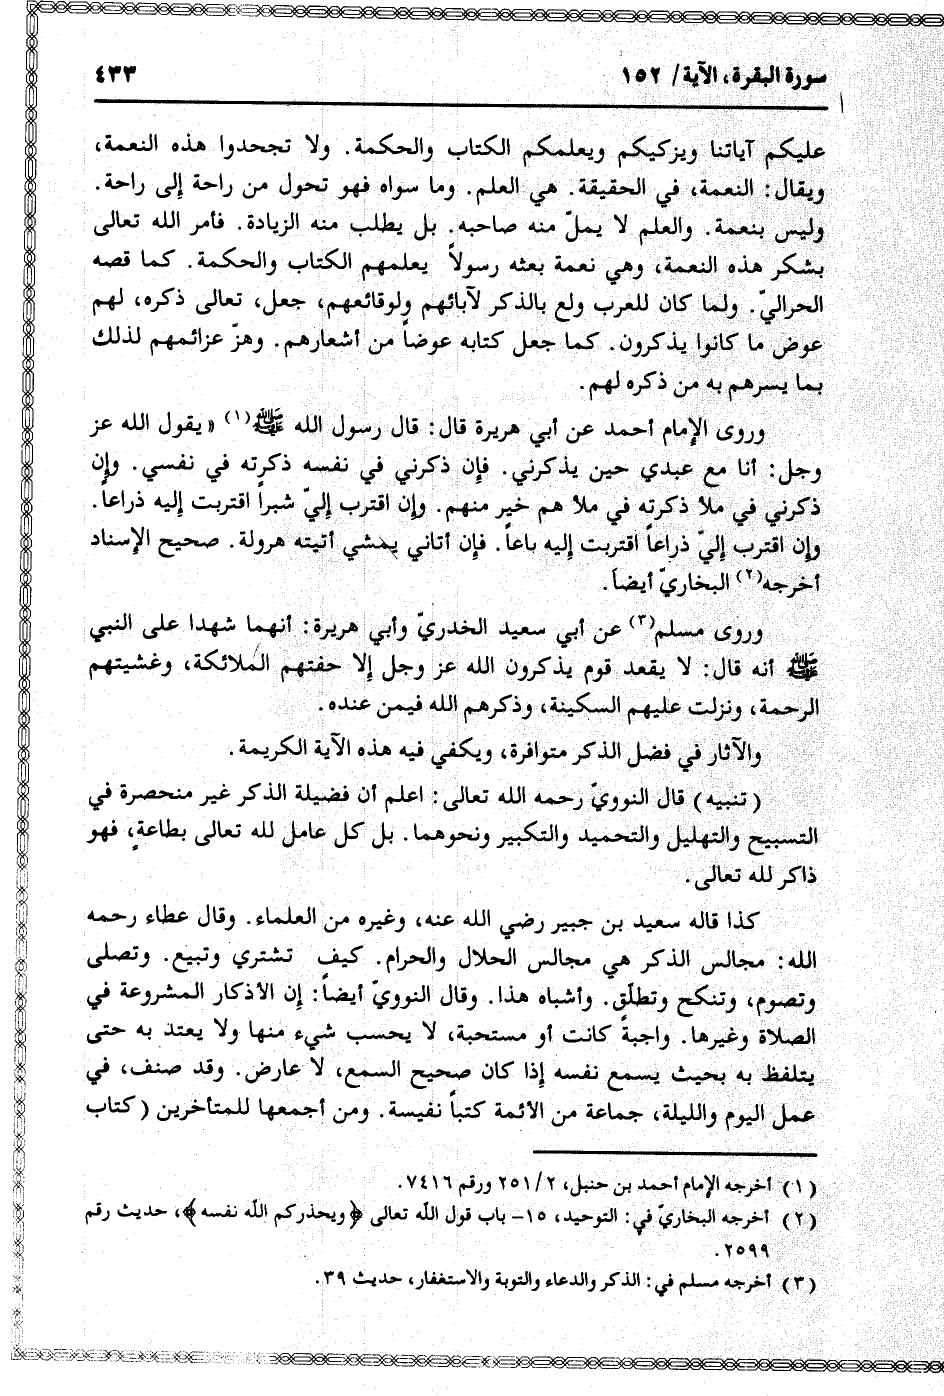 سورة البقرة، الآية/ ١٥٢
٤٣٣
عليكم آياتنا ويزكيكم ويعلمكم الكتاب والحكمة. ولا تجحدوا هذه النعمة،
ويقال: النعمة، في الحقيقة. هي العلم. وما سواه فهو تحول من راحة إلى راحة.
وليس بنعمة. والعلم لا يملّ منه صاحبه. بل يطلب منه الزيادة. فأمر الله تعالى
بشكر هذه النعمة، وهي نعمة بعثه رسولاً يعلمهم الكتاب والحكمة. كما قصه
الحراليّ. ولما كان للعرب ولع بالذكر لآبائهم ولوقائعهم، جعل، تعالى ذكره، لهم
عوض ما كانوا يذكرون. كما جعل كتابه عوضاً من أشعارهم. وهزّ عزائمهم لذلك
بما يسرهم به من ذكره لهم.
وروى الإمام أحمد عن أبي هريرة قال: قال رسول الله ﷺ (١) « يقول الله عز
وجل: أنا مع عبدي حين يذكرني. فإن ذكرني في نفسه ذكرته في نفسي. وإن
ذكرني في ملأ ذكرته في ملأ هم خير منهم. وإن اقترب إليّ شبراً اقتربت إليه ذراعاً.
وإن اقترب إليّ ذراعاً اقتربت إليه باعاً. فإن أتاني يمشي أتيته هرولة. صحيح الإسناد
أخرجه(٢) البخاريّ أيضاً.
وروى مسلم(٣) عن أبي سعيد الخدريّ وأبي هريرة: أنهما شهدا على النبي
ﷺ أنه قال: لا يقعد قوم يذكرون الله عز وجل إلا حفتهم الملائكة، وغشيتهم
الرحمة، ونزلت عليهم السكينة، وذكرهم الله فيمن عنده.
والآثار في فضل الذكر متوافرة، ويكفي فيه هذه الآية الكريمة.
(تنبيه) قال النوويّ رحمه الله تعالى: اعلم أن فضيلة الذكر غير منحصرة في
التسبيح والتهليل والتحميد والتكبير ونحوهما. بل كل عامل لله تعالى بطاعةٍ، فهو
ذاكر لله تعالى.
كذا قاله سعيد بن جبير رضي الله عنه، وغيره من العلماء. وقال عطاء رحمه
الله: مجالس الذكر هي مجالس الحلال والحرام. كيف تشتري وتبيع. وتصلى
وتصوم، وتنكح وتطلّق. وأشباه هذا. وقال النوويّ أيضاً: إن الأذكار المشروعة في
الصلاة وغيرها. واجبةً كانت أو مستحبة، لا يحسب شيء منها ولا يعتد به حتى
يتلفظ به بحيث يسمع نفسه إذا كان صحيح السمع، لا عارض. وقد صنف، في
عمل اليوم والليلة، جماعة من الأئمة كتباً نفيسة. ومن أجمعها للمتأخرين (كتاب
(١) أخرجه الإمام أحمد بن حنبل، ٢٥١/٢ ورقم ٧٤١٦.
(٢) أخرجه البخاريّ في: التوحيد، ١٥- باب قول الله تعالى ﴿ويحذركم الله نفسه﴾، حديث رقم
٢٥٩٩.
(٣) أخرجه مسلم في: الذكر والدعاء والتوبة والاستغفار، حديث ٣٩.